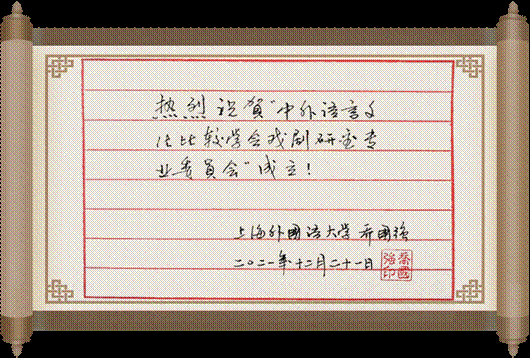 热烈祝贺“中外语言文
化比较学会戏剧研究专
业委员会”成立！
上海外国语大学 乔国强
二〇二一年十二月二十一日
喬國
强印